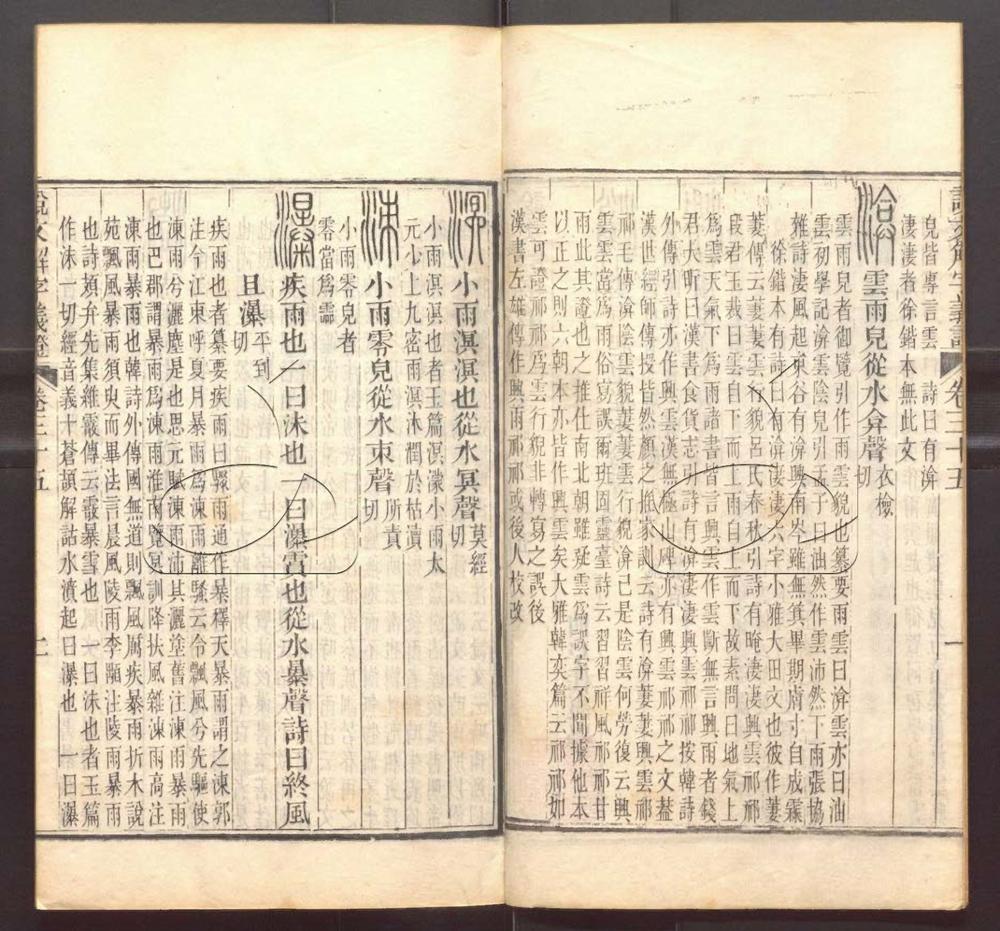 說文解字義證 卷三十五 一
皃皆專言雲 詩曰有渰
淒淒者徐鍇本無此文
渰 雲雨皃從水弇聲 衣檢切
雲雨皃者御覽引作雨雲貌也纂要雨雲曰渰雲亦曰油
雲初學記渰雲陰皃引孟子曰油然作雲沛然下雨張協
雜詩淒風起東谷有渰興南岑雖無箕畢期膚寸自成霖
徐鍇本有詩曰有渰淒淒六字小雅大田文也彼作萋
萋傳云萋萋雲行貌呂氏春秋引詩有晻淒淒興雲祁祁
段君玉裁曰雲自下而上雨自上而下故素問曰地氣上
為雲天氣下為雨諸書皆言興雲作雲斷無言興雨者錢
君大昕曰漢書食貨志引詩有渰淒淒興雲祁祁按韓詩
外傳引詩亦作興雲無極山碑亦有興雲祁祁之文蓋
漢世經師傳授皆然顏之推家訓云詩有渰萋萋興雲祁
祁毛傳渰陰雲貌萋萋雲行貌渰已是陰雲何勞復云興
雲雲當為雨俗寫誤爾班固靈臺詩云習習祥風祁祁甘
雨此其證也之推仕南北朝雖疑雲為誤字不聞據他本
以正之則六朝本亦皆作興雲矣大雅韓奕篇云祁祁如
雲可證祁祁為雲行貌非轉寫之誤後
漢書左雄傳作興雨祁祁或後人校改
溟 小雨溟溟也從水冥聲 莫經切
小雨溟溟也者玉篇溟濛小雨太
元少上九密雨溟沐潤於枯瀆
涑 小雨零皃從水朿聲 所責切
小雨零皃者
零當為霝
瀑 疾雨也一曰沫也一曰瀑霣也從水暴聲詩曰終風
且瀑 平到切
疾雨也者纂要疾雨曰驟雨通作暴釋天暴雨謂之涷郭
注今江東呼夏月暴雨為涷雨離騷云令飄風兮先驅使
涷雨兮灑塵是也思元賦涷雨沛其灑塗舊注涷雨暴雨
也巴郡謂暴雨為涷雨淮南覽冥訓降扶風雜涷雨高注
涷雨暴雨也韓詩外傳國無道則飄風厲疾暴雨折木說
苑飄風暴雨須臾而畢法言晨風陵雨李軌注陵雨暴雨
也詩頍弁先集維霰傳云霰暴雪也 一曰沫也者玉篇
作沬一切經音義十蒼頡解詁水濆起曰瀑也 一曰瀑
說文解字義證 卷三十五 二